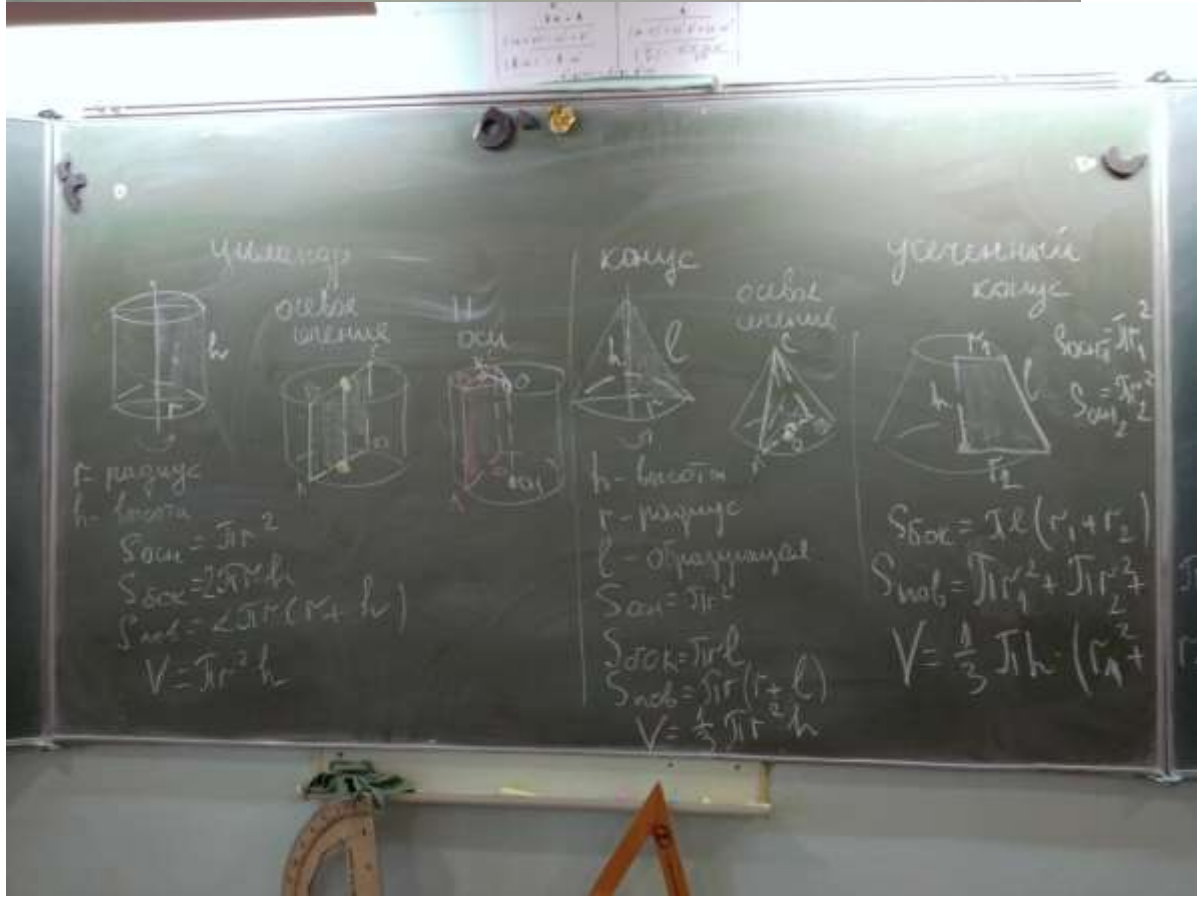 цилиндр
осевое
сечение
||
оси
h
r
r - радиус
h - высота
Sосн = πr²
Sбок = 2πrh
Sпов = 2πr(r + h)
V = πr²h
конус
осевое
сечение
h
l
r
h - высота
r - радиус
l - образующая
Sосн = πr²
Sбок = πrl
Sпов = πr(r + l)
V = 1/3 πr²h
усеченный
конус
r₁
h
l
r₂
Sосн₁ = πr₁²
Sосн₂ = πr₂²
Sбок = πl(r₁ + r₂)
Sпов = πr₁² + πr₂² +
V = 1/3 πh · (r₁² +